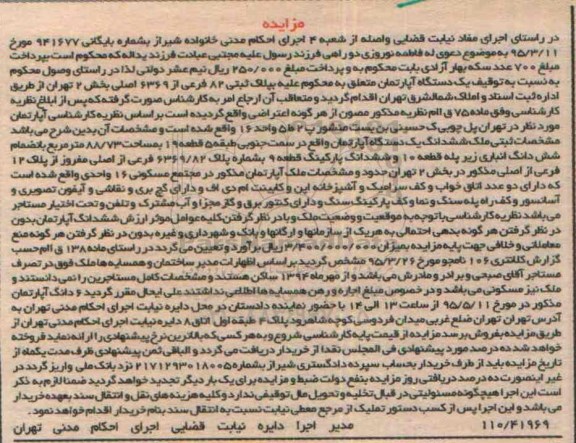 مزایده
در راستای اجرای مفاد نیابت قضایی واصله از شعبه ۴ اجرای احکام مدنی خانواده شیراز بشماره بایگانی ۹۴۱۶۷۷ مورخ
۹۵/۳/۱۱ به موضوع دعوی له فاطمه نوروزی دو راهی فرزند رسول علیه مجتبی عبادت فرزند یداله که محکوم است بپرداخت
مبلغ ۷۰۰ عدد سکه بهار آزادی بابت محکوم به و پرداخت مبلغ ۲۵۰/۰۰۰ ریال نیم عشر دولتی لذا در راستای وصول محکوم
به نسبت به توقیف یک دستگاه آپارتمان متعلق به محکوم علیه بپلاک ثبتی ۸۲ فرعی از ۶۳۶۹ اصلی بخش ۲ تهران از طریق
اداره ثبت اسناد و املاک شمالشرق تهران اقدام گردید و متعاقب آن ارجاع امر به کارشناس صورت گرفته که پس از ابلاغ نظریه
کارشناسی وفق ماده ۷۵ ق ا م نظریه مذکور مصون از هر گونه اعتراضی واقع گردیده است بر اساس نظریه کارشناسی آپارتمان
مورد نظر در تهران پل چوبی ک حسینی بن بست منصور پ ۲ ط ۵ واحد ۱۶ واقع شده است و مشخصات آن بدین شرح می باشد
مشخصات ثبتی ملک ششدانگ یک دستگاه آپارتمان واقع در سمت جنوبی طبقه ۵ قطعه ۱۹ بمساحت ۸۸/۷۳ مترمربع بانضمام
شش دانگ انباری زیر پله قطعه ۱۰ و ششدانگ پارکینگ قطعه ۹ بشماره پلاک ۶۳۶۹/۸۲ فرعی از اصلی مفروز از پلاک ۱۲
فرعی از اصلی مذکور در بخش ۲ تهران حدود و مشخصات ملک آپارتمان مذکور در مجتمع مسکونی ۱۶ واحدی واقع شده است
که دارای دو عدد اتاق خواب و کف سرامیک و آشپزخانه اپن و کابینت ام دی اف و دارای گچ بری و نقاشی و آیفون تصویری و
آسانسور و کف راه پله سنگ و نما و کف پارکینگ سنگ و دارای کنتور برق و گاز مجزا و آب مشترک و تلفن و تحت اختیار مستاجر
می باشد نظریه کارشناسی با توجه به موقعیت و وضعیت ملک و با در نظر گرفتن کلیه عوامل موثر ارزش ششدانگ آپارتمان بدون
در نظر گرفتن هر گونه بدهی احتمالی به هر یک از سازمانها و ارگانها و بانک و شهرداری و غیره بدون در نظر گرفتن هر گونه منع
معاملاتی و خلافی جهت پایه مزایده بمیزان ۳/۴۰۰/۰۰۰/۰۰۰ ریال برآورد و تعیین می گردد در راستای ماده ۱۳۸ ق ا م حسب
گزارش کلانتری ۱۰۶ نامجو مورخ ۹۵/۳/۲۶ مشخص گردید بر اساس اظهارات مدیر ساختمان و همسایه ها ملک فوق در تصرف
مستاجر آقای صبحی و برادر و مادرش می باشد و از مهر ماه ۱۳۹۴ ساکن هستند و مشخصات کامل مستاجرین را نمی دانستند و
ملک نیز مسکونی می باشد و در خصوص مبلغ اجاره و رهن همسایه ها اطلاعی نداشتند علی ایحال مقرر گردید ۶ دانگ آپارتمان
مذکور در مورخ ۹۵/۵/۱۱ از ساعت ۱۳ الی ۱۴ با حضور نماینده دادستان در محل دایره نیابت اجرای احکام مدنی تهران به
آدرس تهران تهران ضلع غربی میدان فردوسی کوچه شاهرود پلاک ۴ طبقه اول اتاق ۸ دایره نیابت اجرای احکام مدنی تهران از
طریق مزایده بفروش برسد مزایده از قیمت پایه کارشناسی شروع و به هر کسی که بالاترین نرخ پیشنهادی را ارائه نماید فروخته
خواهد شد ده درصد مورد پیشنهادی فی المجلس نقدا از خریدار دریافت می گردد و الباقی ثمن پیشنهادی ظرف مدت یکماه از
تاریخ مزایده باید از طرف خریدار بحساب سپرده دادگستری شیراز بشماره ۲۱۷۱۲۹۳۰۱۸۰۰۵ نزد بانک ملی واریز گردد در
غیر اینصورت ده درصد دریافتی روز مزایده بنفع دولت ضبط و مزایده برای یک بار دیگر تجدید خواهد گردید ضمنا لازم به ذکر
است این اجرا هیچگونه مسئولیتی در قبال تخلیه و تحویل مال توقیفی ندارد و کلیه هزینه های نقل و انتقال سند بعهده خریدار
می باشد و این اجرا پس از کسب دستور تملیک از مرجع معطی نیابت نسبت به انتقال سند بنام خریدار اقدام خواهد نمود.
۱۱۰/۴۱۹۶۹ مدیر اجرا دایره نیابت قضایی اجرای احکام مدنی تهران